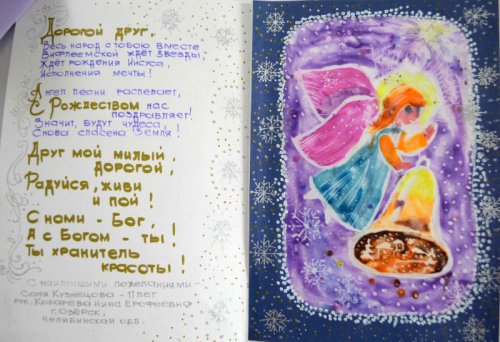 Дорогой друг,
Весь народ с тобою вместе
Вифлеемской ждёт звезды,
Ждёт рождения Иисуса,
Исполнения мечты!
Ангел песни распевает,
С Рождеством нас
поздравляет!
Значит, будут чудеса,
Снова спасена Земля!
Друг мой милый,
дорогой,
Радуйся, живи
и пой!
С нами - Бог,
А с Богом - ты!
Ты хранитель
красоты!
С наилучшими пожеланиями
Соня Кузнецова - 11 лет
рук. Кокарева Нина Ерофеевна
г. Озёрск,
Челябинская обл.